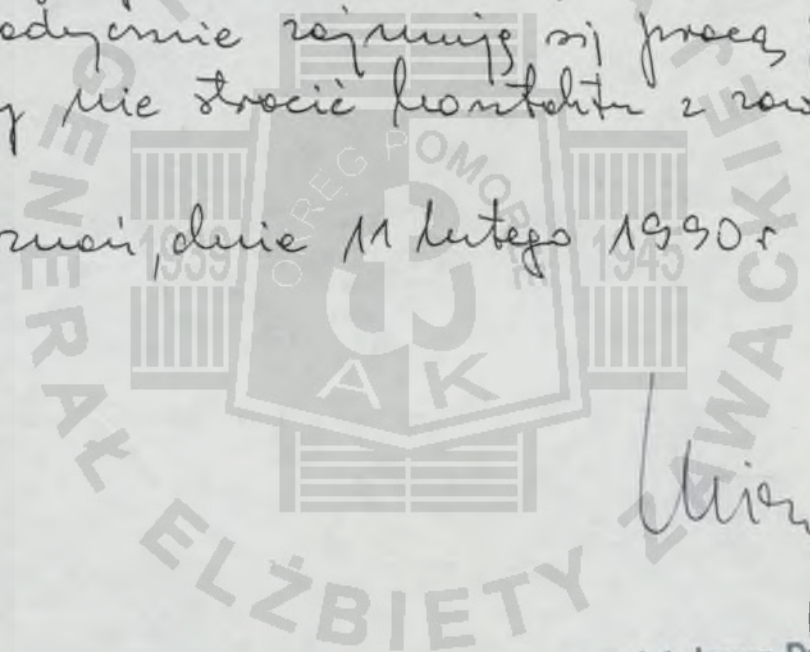 odycznie zajmuję się pracą
y nie stracić kontaktu z zaw
znań, dnia 11 lutego 1990 r
OKRĘG POMOR
1939 1945
AK
GENERAŁ ELŻBIETY ZAWACKIEJ